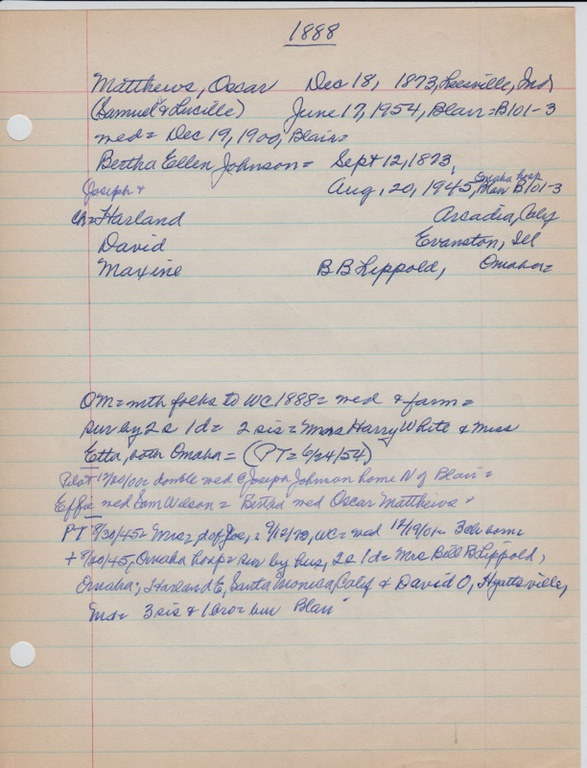 1888
Matthews, Oscar Dec 18, 1873, Leesville, Ind
(Samuel & Lucille) June 17, 1954, Blair = B101-3
wed = Dec 19, 1900, Blair =
Bertha Ellen Johnson = Sept 12, 1873,
Joseph + Aug, 20, 1945, Omaha hosp Blair B101-3
ch = Harland Arcadia, Calif
David Evanston, Ill
Maxine B B Lippold, Omaha =
OM = with folks to WC 1888 = wed & farm =
sur by 2 s 1 d = 2 sis = Mrs Harry White & Miss
Etta, both Omaha = (PT = 6/24/54)
Pilot 12/20/00 double wed @ Joseph Johnson home N of Blair =
Effie wed Sam Wilson = Bertha wed Oscar Matthews
PT 8/30/45 = Mrs = d of Joe, = 9/12/73, WC = wed 12/19/01 = 3 ch home
+ 8/20/45, Omaha hosp = sur by hus, 2 s 1 d = Mrs Bill B Lippold,
Omaha; Harland E, Santa Monica, Calif & David O, Hyattsville,
Md = 3 sis & 1 bro = bur Blair